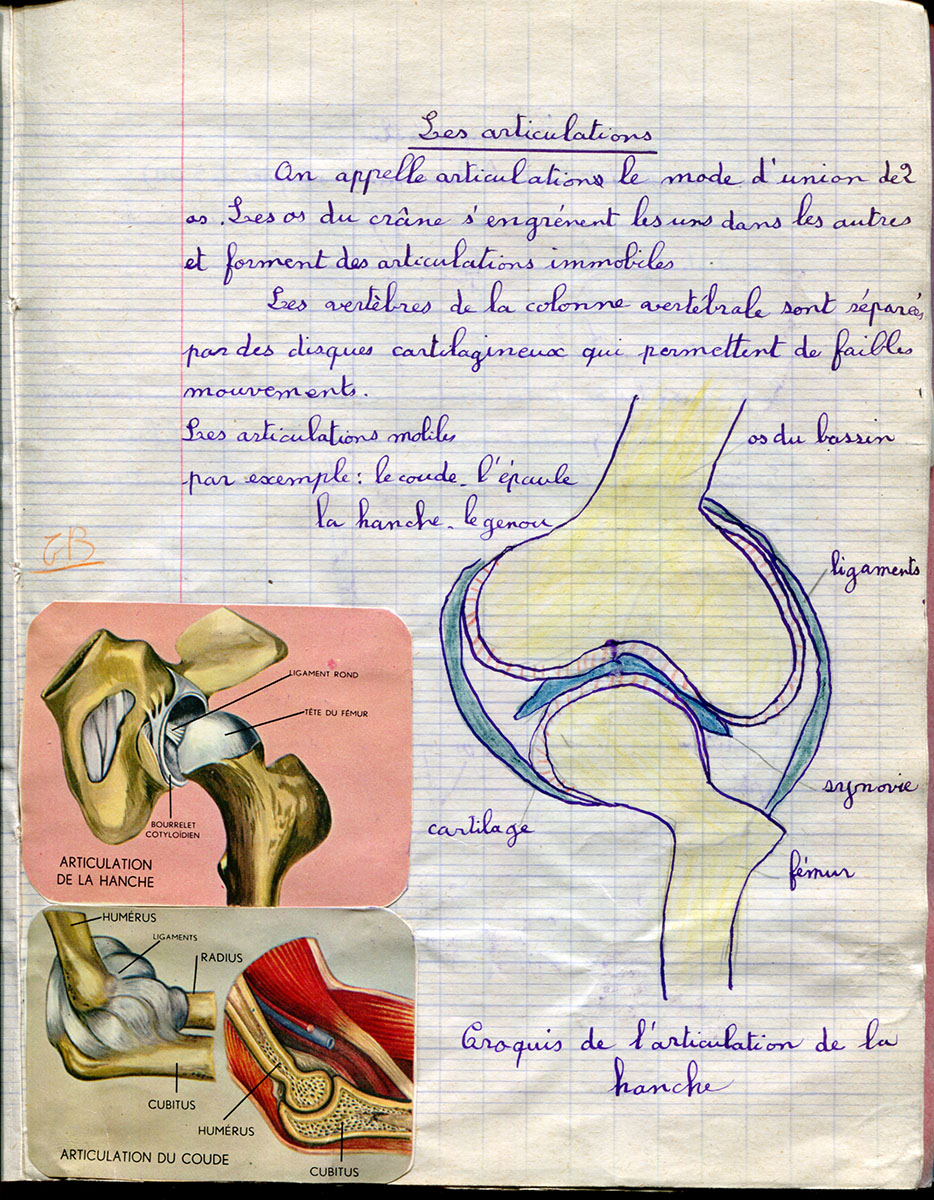 Les articulations
On appelle articulations le mode d'union de 2
os. Les os du crâne s'engrénent les uns dans les autres
et forment des articulations immobiles
Les vertèbres de la colonne vertébrale sont séparées
par des disques cartilagineux qui permettent de faibles
mouvements.
Les articulations mobiles
par exemple : le coude - l'épaule
la hanche - le genou
TB
os du bassin
ligaments
synovie
cartilage
fémur
Croquis de l'articulation de la
hanche
LIGAMENT ROND
TÊTE DU FÉMUR
BOURRELET
COTYLOÏDIEN
ARTICULATION
DE LA HANCHE
HUMÉRUS
LIGAMENTS
RADIUS
CUBITUS
HUMÉRUS
CUBITUS
ARTICULATION DU COUDE